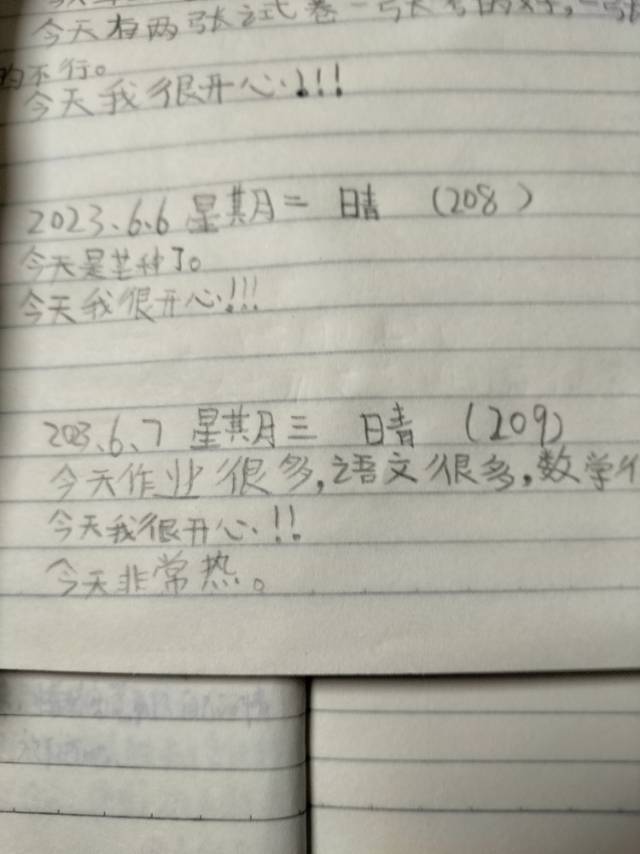 今天有两张试卷一张考的好,一张
的不行。
今天我很开心!!!
2023.6.6 星期二 晴 (208)
今天是芒种了。
今天我很开心!!!
2023.6.7 星期三 晴 (209)
今天作业很多,语文很多,数学
今天我很开心!!
今天非常热。